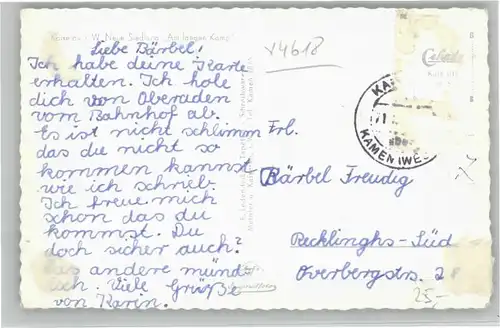 Kamen i. W. Neue Siedlung "Am langen Kamp"
Liebe Bärbel!
Ich habe deine Karte
erhalten. Ich hole
dich von Oberaden
vom Bahnhof ab.
Es ist nicht schlimm
das du nicht so
kommen kannst
wie ich schrieb.
Ich freue mich
schon das du
kommst. Du
doch sicher auch?
das andere münd-
lich. Viele Grüße
von Karin.
v4618
Cekade
KAMEN (WES
Frl.
Bärbel Freudig
Recklinghs-Süd
Overbergstr.
25,-